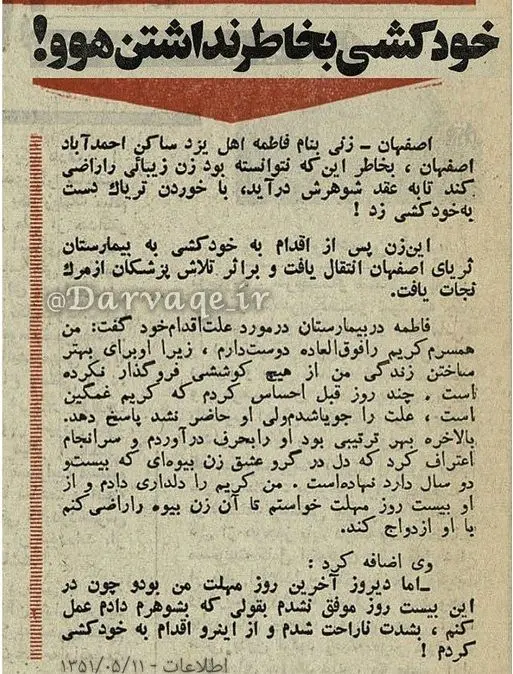 خودکشی بخاطر نداشتن هوو!
اصفهان – زنی بنام فاطمه اهل یزد ساکن احمدآباد
اصفهان ، بخاطر این‌که نتوانسته بود زن زیبائی راراضی
کند تابه عقد شوهرش درآید، با خوردن تریاك دست
به‌خودکشی زد !
این‌زن پس از اقدام به خودکشی به بیمارستان
ثریای اصفهان انتقال یافت و براثر تلاش پزشکان ازمرك
نجات یافت.
@Darvaqe_ir
فاطمه دربیمارستان درمورد علت‌اقدام‌خود گفت: من
همسرم‌کریم رافوق‌العاده دوست‌دارم ، زیرا اوبرای بهتر
ساختن زندگی من از هیچ کوششی فروگذار نکرده
است . چند روز قبل احساس کردم که کریم غمگین
است ، علت را جویاشدم‌ولی او حاضر نشد پاسخ دهد.
بالاخره بهر ترتیبی بود او رابحرف درآوردم و سرانجام
اعتراف کرد که دل در گرو عشق زن بیوه‌ای که بیست‌و
دو سال دارد نهاده‌است . من کریم را دلداری دادم و از
او بیست روز مهلت خواستم تا آن زن بیوه راراضی‌کنم
با او ازدواج کند.
وی اضافه کرد :
–اما دیروز آخرین روز مهلت من بودو چون در
این بیست روز موفق نشدم بقولی که بشوهرم دادم عمل
کنم ، بشدت ناراحت شدم و از اینرو اقدام به خودکشی
کردم !
اطلاعات - ۱۳۵۱/۰۵/۱۱